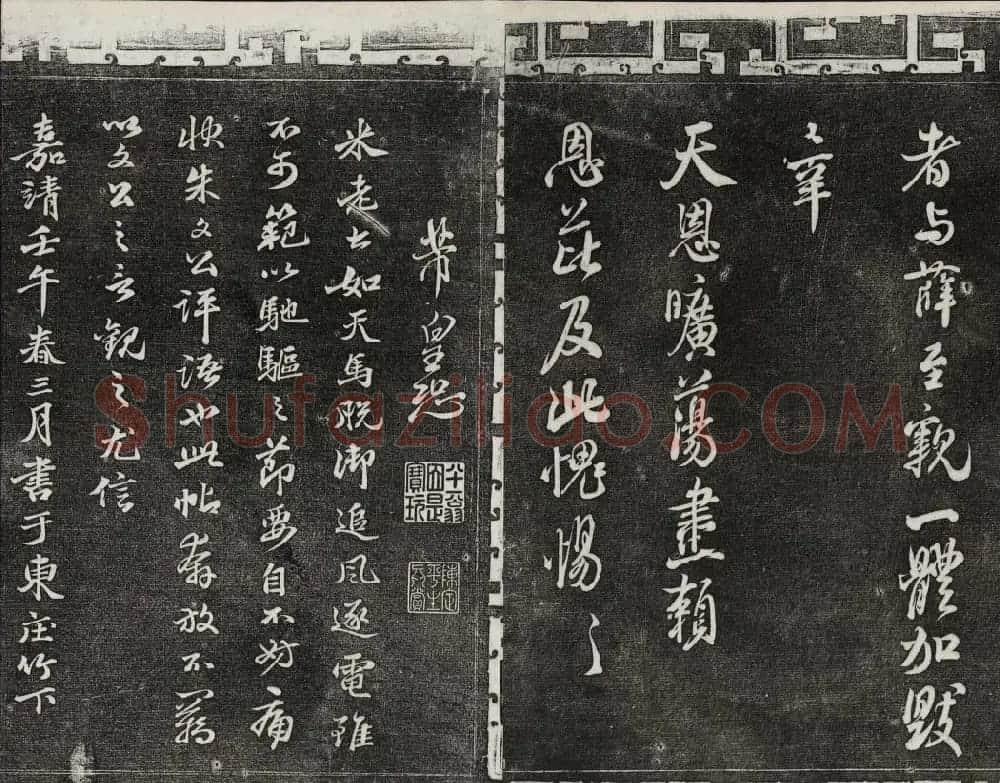 者与薛至親一體加毀
幸
天恩曠蕩盡賴
恩茈及此愧惕〻
芾皇恐
米老書如天馬脫御追風逐電雖
不可範以馳驅之節要自不妨痛
快朱文公評語也此帖奔放不羈
以文公之言觀之尤信
嘉靖壬午春三月書于東庄竹下
Shufaziliao.COM